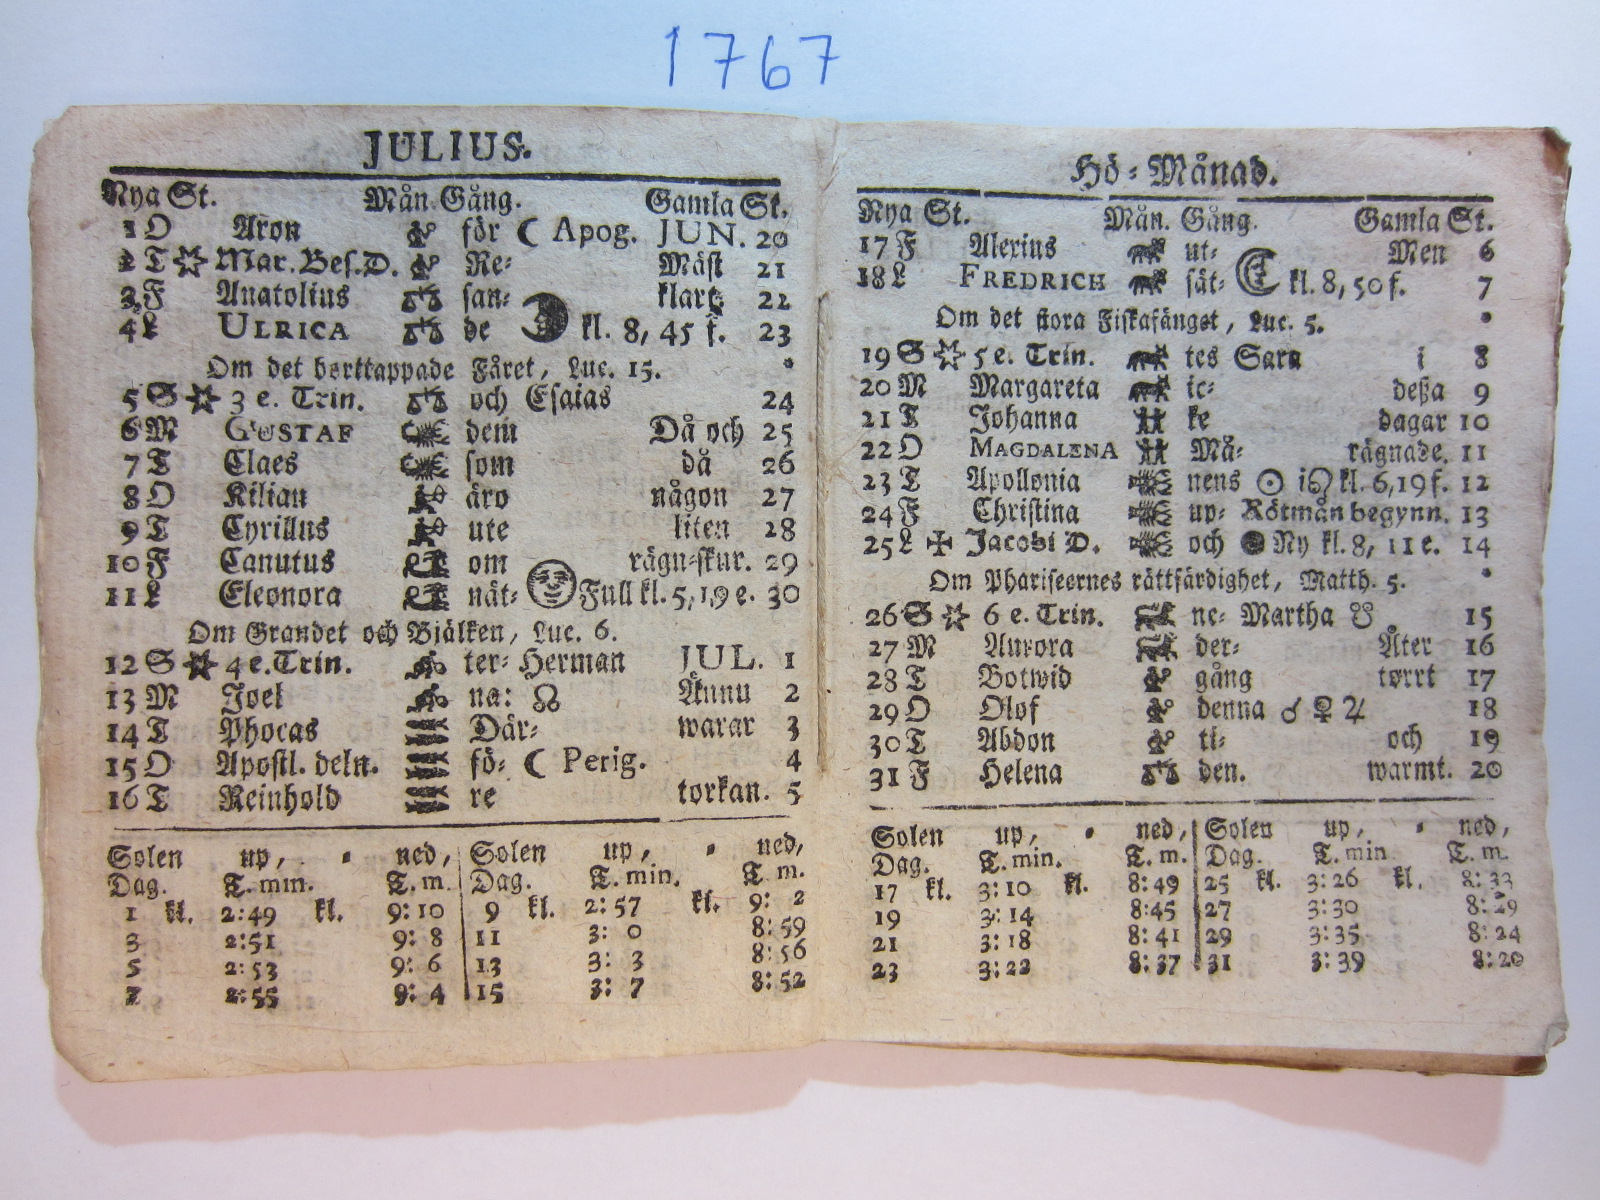 1767
JULIUS.
Nya St. Mån Gång. Gamla St.
1 O Aron för ☾ Apog. JUN. 20
2 T Mar. Bes. D. Re- Mäst 21
3 F Anatolius san- klart. 22
4 L ULRICA de kl. 8, 45 f. 23
Om det borttappade Fåret, Luc. 15.
5 S 3 e. Trin. och Esaias 24
6 M GUSTAF dem Då och 25
7 T Claes som då 26
8 O Kilian äro någon 27
9 T Cyrillus ute liten 28
10 F Canutus om rägn-skur. 29
11 L Eleonora nät- Full kl. 5, 19 e. 30
Om Grandet och Bjälken, Luc. 6.
12 S 4 e. Trin. ter- Herman JUL. 1
13 M Joel na: ☊ Ännu 2
14 T Phocas Där- warar 3
15 O Apostl. deln. fö- ☾ Perig. 4
16 T Reinhold re torkan. 5
Solen up, ned, Solen up, ned,
Dag. T. min. T. m. Dag. T. min. T. m.
1 kl. 2:49 kl. 9:10 9 kl. 2:57 kl. 9: 2
3 2:51 9: 8 11 3: 0 8:59
5 2:53 9: 6 13 3: 3 8:56
7 2:55 9: 4 15 3: 7 8:52
Hö-Månad.
Nya St. Mån. Gång. Gamla St.
17 F Alexius ut- Men 6
18 L FREDRICH sät- kl. 8, 50 f. 7
Om det stora Fiskafänget, Luc. 5.
19 S 5 e. Trin. tes Sara i 8
20 M Margareta ic- deßa 9
21 T Johanna ke dagar 10
22 O MAGDALENA Må- rägnade. 11
23 T Apollonia nens ☉ i ♌ kl. 6, 19 f. 12
24 F Christina up- Rötmån begynn. 13
25 L ✠ Jacobi D. och Ny kl. 8, 11 e. 14
Om Phariseernes rättfärdighet, Matth. 5.
26 S 6 e. Trin. ne- Martha ☋ 15
27 M Aurora der- Åter 16
28 T Botwid gång torrt 17
29 O Olof denna ☌ ♀ ♃ 18
30 T Abdon ti- och 19
31 F Helena den. warmt. 20
Solen up, ned, Solen up, ned,
Dag. T. min. T. m. Dag. T. min T. m.
17 kl. 3:10 kl. 8:49 25 kl. 3:26 kl. 8:33
19 3:14 8:45 27 3:30 8:29
21 3:18 8:41 29 3:35 8:24
23 3:22 8:37 31 3:39 8:20